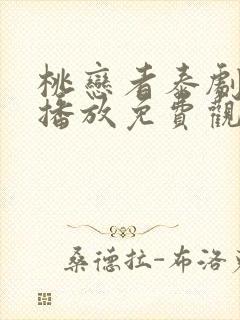 桃戀看泰劇
播放免費觀
桑德拉-布洛克